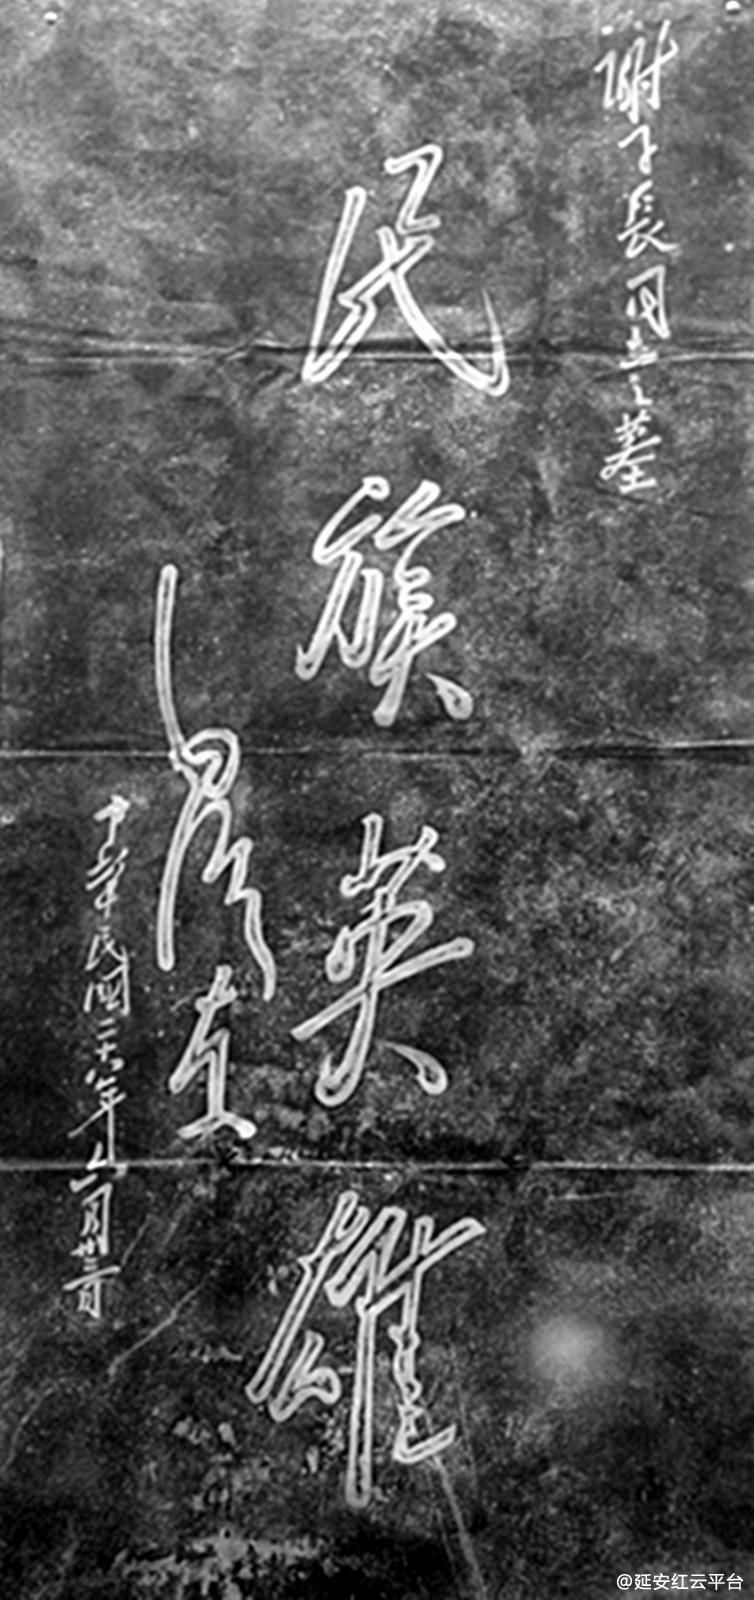 謝子長同志之墓
民族英雄
毛澤東
中華民國二十八年六月廿三日
@延安红云平台